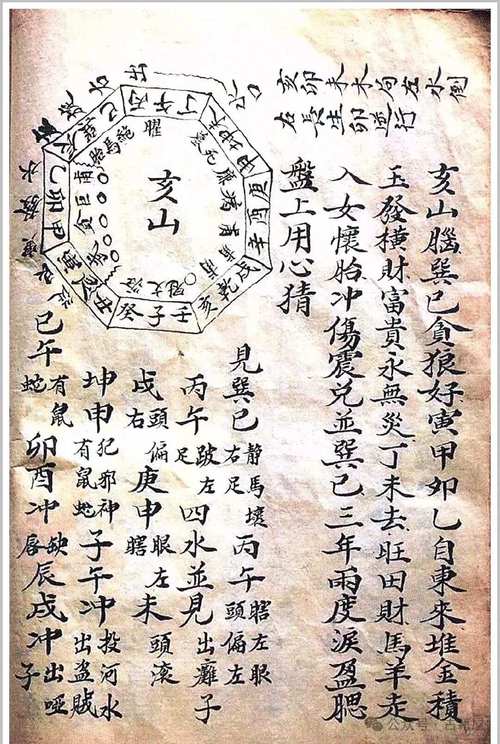 亥卯未木局左水倒
右長生卯逆行
亥山腦巽巳貪狼好寅甲卯乙自東來堆金積
玉發橫財富貴永無災丁未去旺田財馬羊走
入女懷胎冲傷震兌並巽巳三年兩度淚盈腮
盤上用心猜
見巽巳静馬壞右足丙午瞎左眼頭偏左
丙午跛左足四水並見出癱子
戌頭偏右庚申眼左瞎未頭滚
坤申犯邪神有鼠蛇子午冲投河水出盗賊
巳午有鼠蛇卯酉冲缺唇辰戌冲出啞子
亥山
曜
丙午丁
庚酉辛
戌乾亥
壬子癸
甲卯乙
公众号